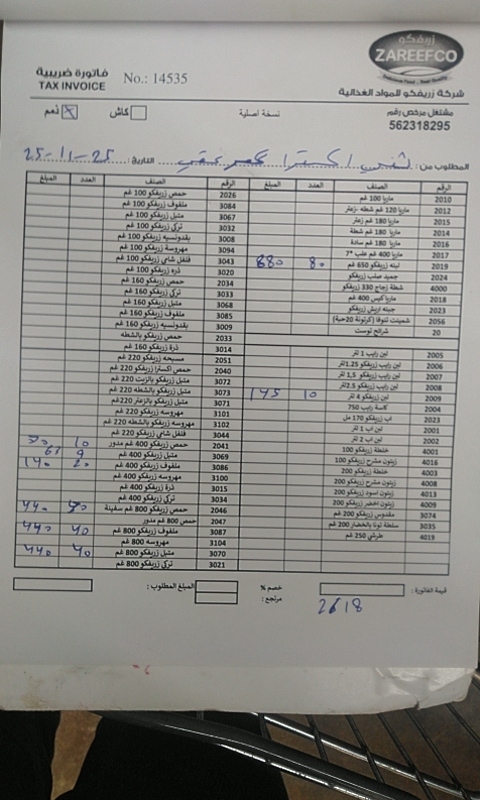 زريفكو
ZAREEFCO
شركة زريفكو للمواد الغذائية
مشتغل مرخص رقم
562318295
فاتورة ضريبية
TAX INVOICE
No.: 14535
نسخة اصلية
كاش
نعم
المطلوب من :
التاريخ : 25-11-25
الرقم الصنف العدد المبلغ
2010 ماريا 100 غم
2012 ماريا 120 غم شطه -زعتر
2015 ماريا 180 غم زعتر
2014 ماريا 180 غم شطة
2016 ماريا 180 غم سادة
2017 ماريا 400 غم علب *7
2019 لبنه زريفكو 650 غم 80 880
2024 جميد صلب زريفكو
4000 شطة زجاج 330 زريفكو
2018 ماريا كيس 400 غم
2023 جبنه اريش زريفكو
2056 شمينت تنوفا (كرتونة 20حبة)
20 شرائح توست
2005 لبن رايب 1 لتر
2006 لبن رايب زريفكو 1.25لتر
2007 لبن رايب زريفكو 1,5 لتر
2008 لبن رايب زريفكو 2.5لتر
2009 لبن زريفكو 4 لتر 10 145
2004 كاسة رايب 750
2023 اب زريفكو 170 مل
2001 لبن اب 1 لتر
2002 لبن اب 2 لتر
4001 خلطة زريفكو 100
4016 زيتون مشرح زريفكو 100
4003 خلطة زريفكو 200
4008 زيتون مشرح زريفكو 200
4013 زيتون اسود زريفكو 200
4009 زيتون اخضر زريفكو 200
3074 مقدوس زريفكو 200 غم
3035 سلطة تونا بالخضار 200 غم
4019 طرشي 250 غم
الرقم الصنف العدد المبلغ
2026 حمص زريفكو 100 غم
3084 ملفوف زريفكو 100 غم
3067 متبل زريفكو 100 غم
3032 تركي زريفكو 100 غم
3008 بقدونسيه زريفكو 100 غم
3094 مهروسة زريفكو 100 غم
3043 فلفل شامي زريفكو 100 غم
3020 ذره زريفكو 100 غم
2034 حمص زريفكو 160 غم
3033 تركي زريفكو 160 غم
3068 متبل زريفكو 160 غم
3085 ملفوف زريفكو 160 غم
3009 بقدونسيه زريفكو 160 غم
2033 حمص زريفكو بالشطه
3014 ذرة زريفكو 160 غم
2051 مسبحه زريفكو 220 غم
2040 حمص اكسترا زريفكو 220 غم
3072 متبل زريفكو بالزيت 220 غم
3073 متبل زريفكو بالشطه 220 غم
3071 متبل زريفكو بالزعتر 220 غم
3101 مهروسه زريفكو 220 غم
3102 مهروسه زريفكو بالشطه 220 غم
3044 فلفل شامي زريفكو 220 غم
2041 حمص زريفكو 400 غم مدور 10
3069 متبل زريفكو 400 غم 9 63
3086 ملفوف زريفكو 400 غم 20 140
3100 مهروسه زريفكو 400 غم
3015 ذرة زريفكو 400 غم
3034 تركي زريفكو 400 غم
2046 حمص زريفكو 800 غم سفينة 440
2047 حمص 800 غم مدور
3087 ملفوف زريفكو 800 غم 40 440
3104 مهروسه 800 غم
3070 متبل زريفكو 800 غم 40 440
3021 تركي زريفكو 800 غم
قيمة الفاتورة :
2618
خصم %
مرتجع :
المبلغ المطلوب :